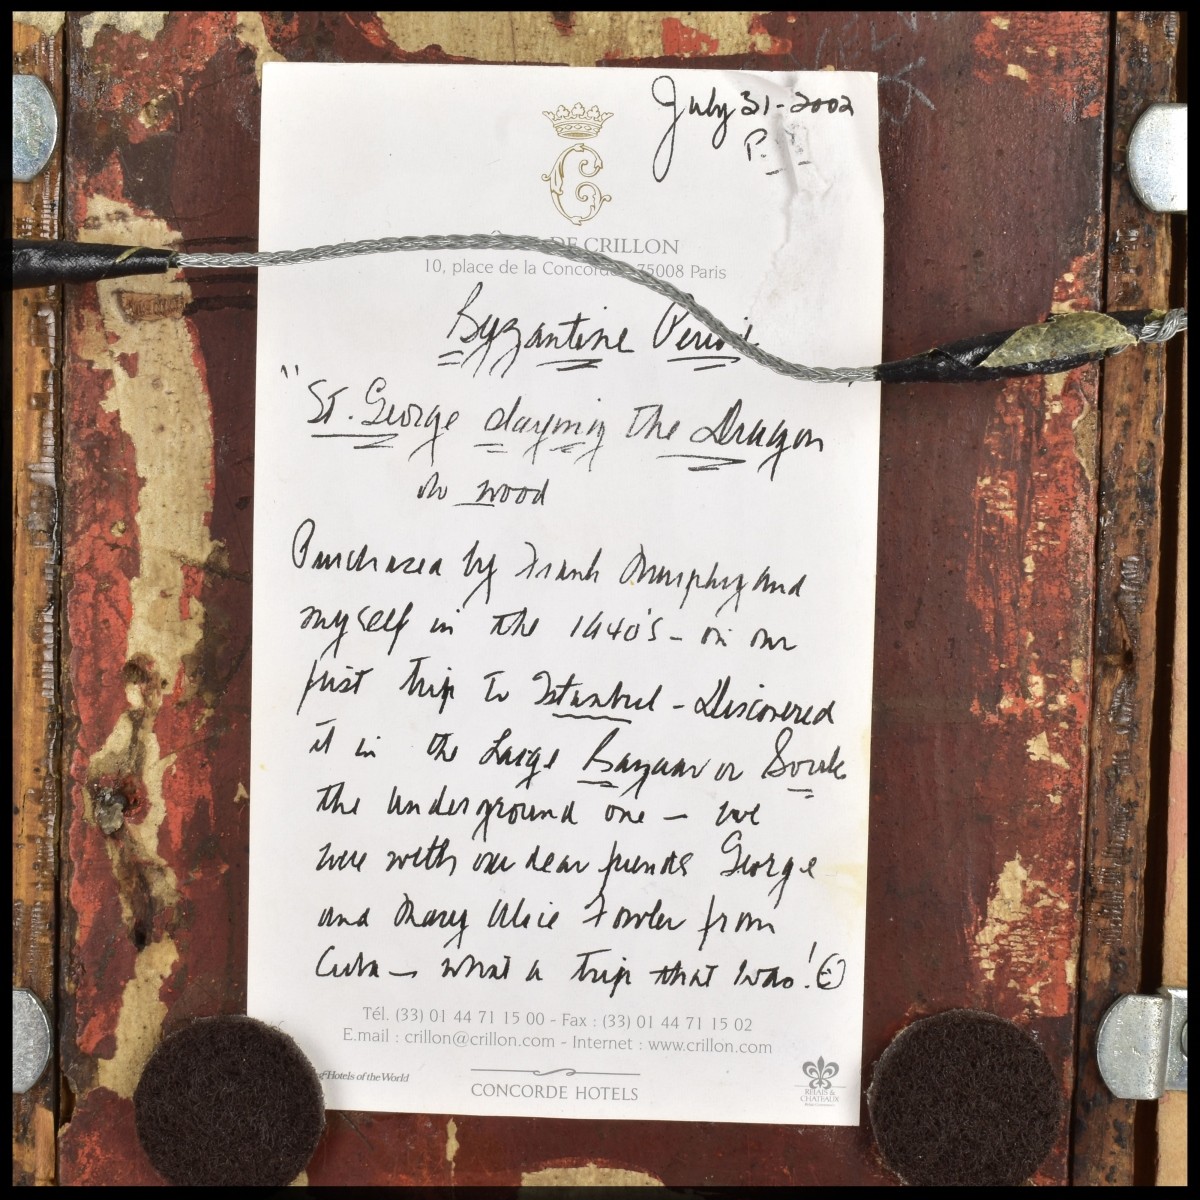 July 31-2002
P.
DE CRILLON
10, place de la Concorde 75008 Paris
Byzantine Period
"St. George slaying the Dragon
on wood
Purchased by Frank Murphy and
myself in the 1940's - on our
first trip to Istanbul - Discovered
it in the Large Bazaar or Souk
the underground one - we
were with our dear friends George
and Mary Alice Fowler from
Cuba - what a trip that was!
Tél. (33) 01 44 71 15 00 - Fax : (33) 01 44 71 15 02
E.mail : crillon@crillon.com - Internet : www.crillon.com
of Hotels of the World
CONCORDE HOTELS
RELAIS &
CHATEAUX